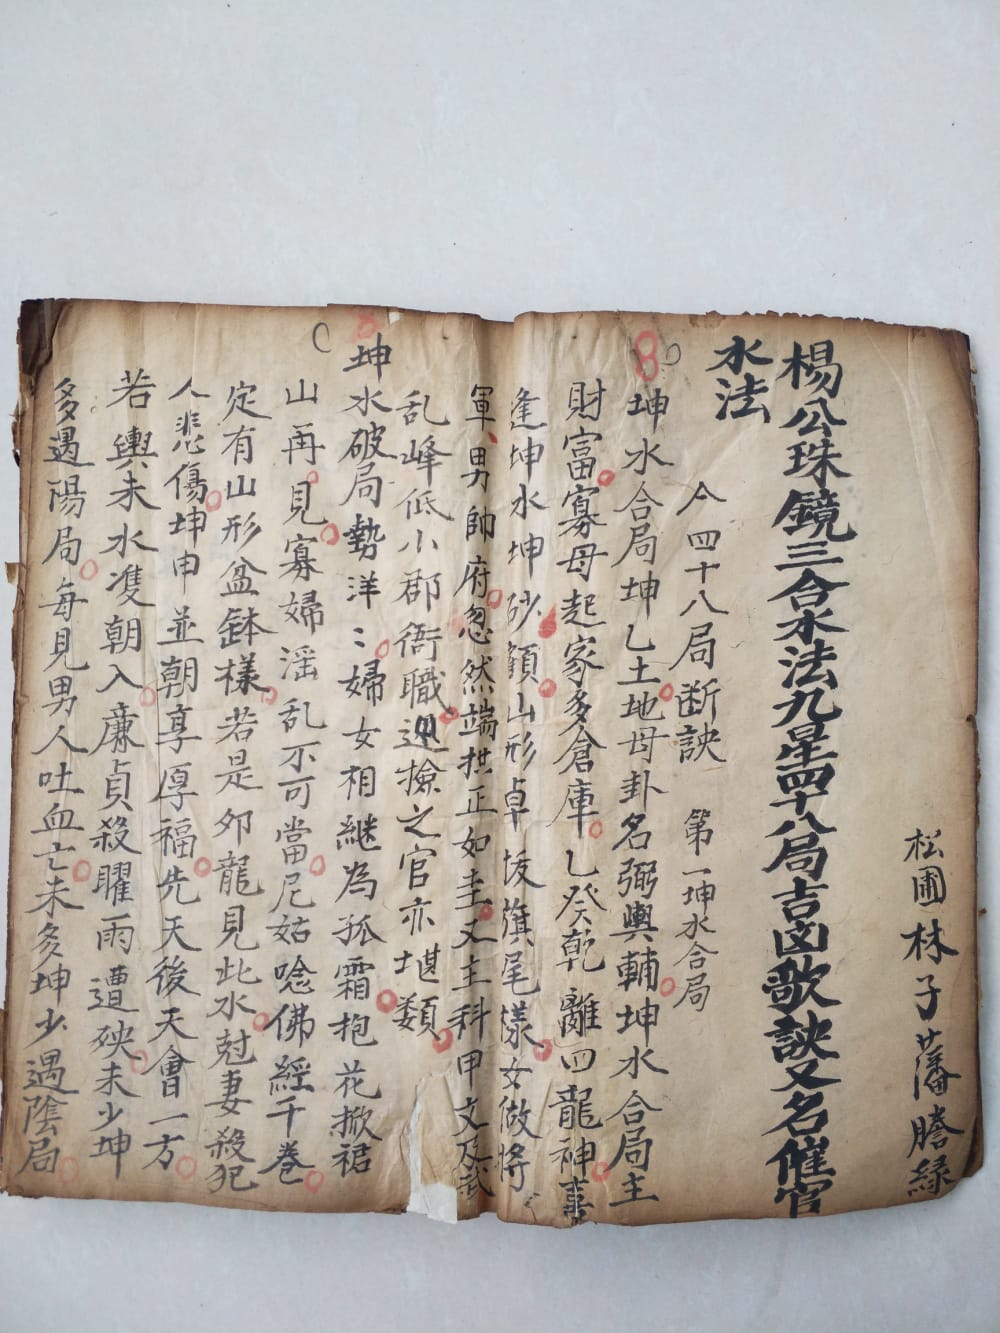 松圃林子藩謄綠
楊公珠鏡三合水法九星四十八局吉凶歌訣又名催官
水法
仐四十八局断訣 第一坤水合局
坤水合局坤乙土地母卦名弼輿輔坤水合局主
財富寡母起家多倉庫乙癸乾離四龍神喜
逢坤水坤砂顧山形卓拔旗尾樣女做將
軍男帥府忽然端拱正如圭又主科甲文及武
乱峰低小郡衙職廵撿之官亦堪類
坤水破局勢洋〻婦女相継為孤霜抱花掀裙
山再見寡婦滛乱不可當尼姑唸佛經千巻
定有山形盆鉢樣若是夘龍見此水尅妻殺犯
人悲傷坤申並朝享厚福先天後天會一方
若輿未水準朝入廉貞殺曜雨遭殃未少坤
多遇陽局每見男人吐血亡未多坤少遇陰局